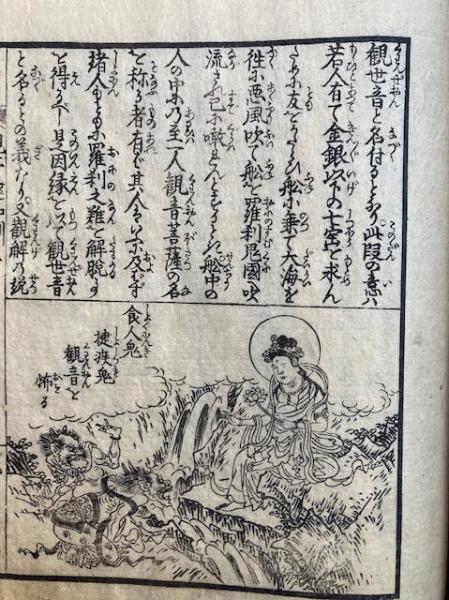 観世音と名付るとあり此段の意ハ
若人有て金銀以下の七宝を求ん
ために友をかたらひ舩に乗て大海を
往に悪風吹て舩を羅刹鬼國へ吹
流され已に噉れんとするとき舩中の
人の中に乃至一人観音菩薩の名
を称る者有バ其人ハいふに及バず
諸人ともに羅刹之難を解脱す
を得る也是因縁を以て観世音
と名るとの義なり又観解の説
食人鬼
捷疾鬼
観音を
怖る